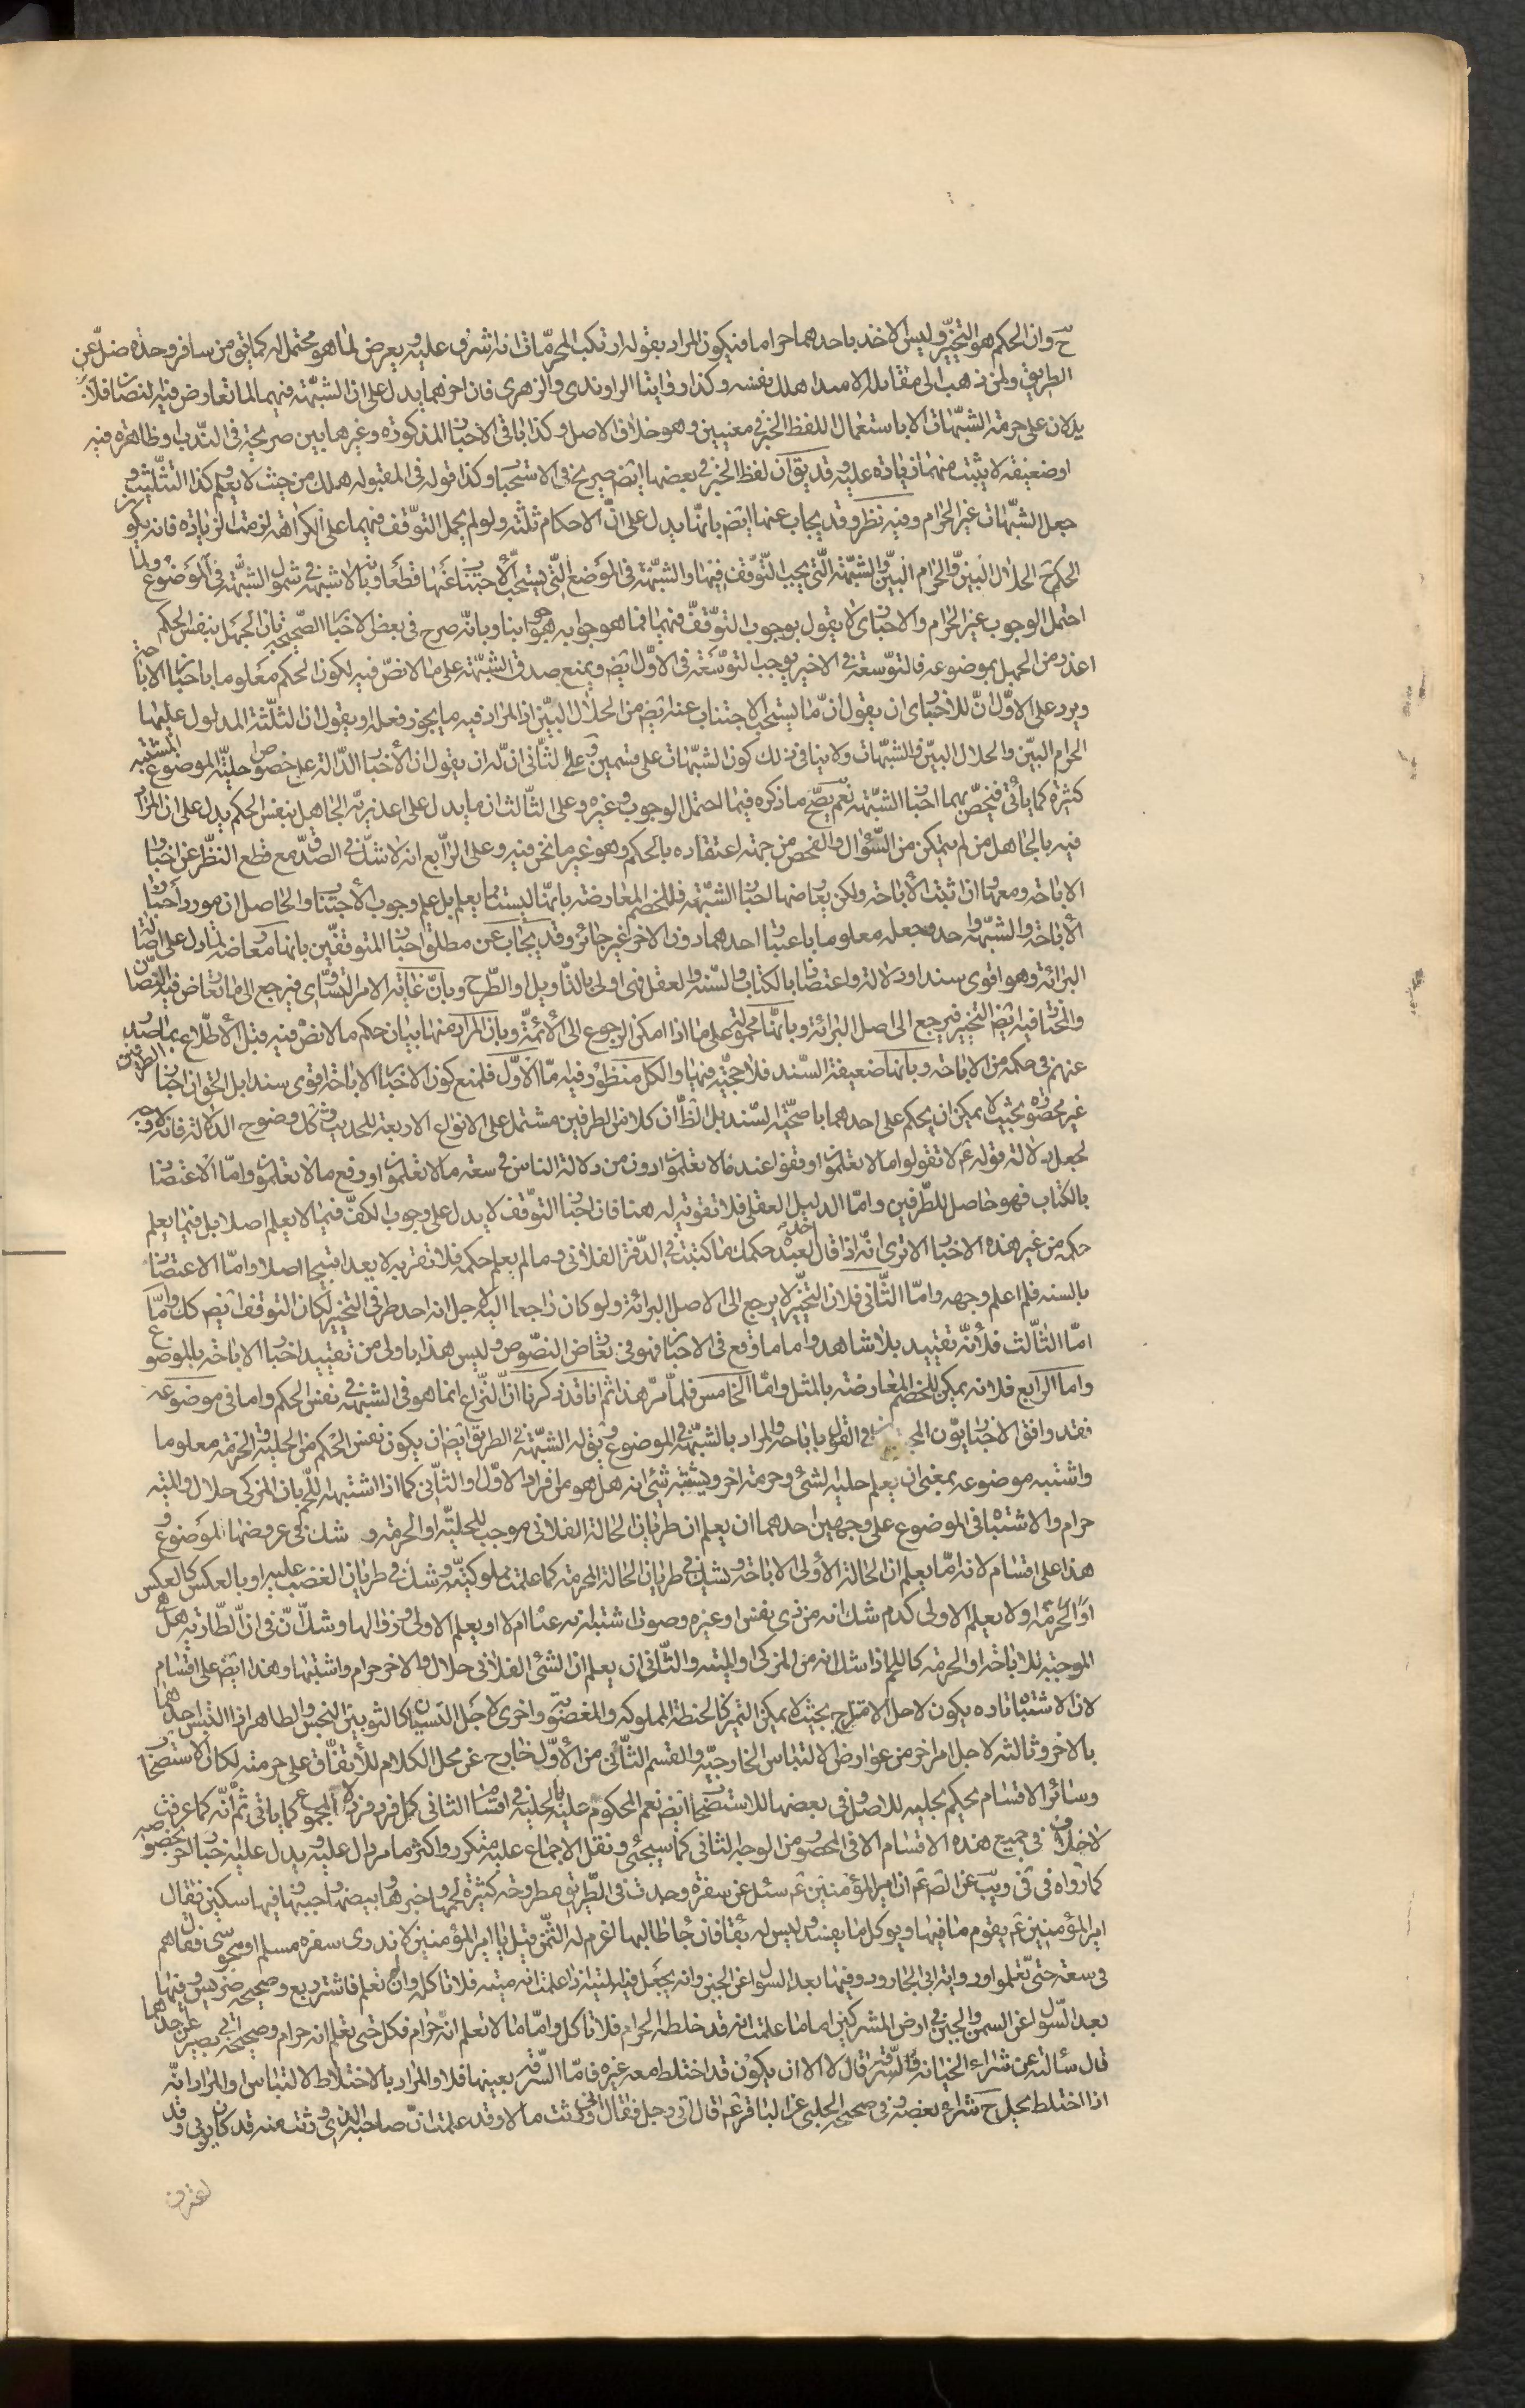 ح وان الحكم هو التخيير وليس الاخذ باحدهما حراما فيكون المراد بقوله ارتكب المحرمات انه اشرف عليه ويعرض لما هو محتمل له كما يق من سافر وحده ضل عن
الطريق ولمن ذهب الى مقابلة الاسد اهلك نفسه وكذا روايتا الراوندى والزهرى فان اخرهما يدل على ان الشبهة فيهما لما تعارض فيه النصان فلا
يدلان على حرمة الشبهات الا باستعمال اللفظ الخبر فى معنيين وهو خلاف الاصل وكذا باقى الاخبار المذكورة وغيرها بين صريحة فى الندب او ظاهرة فيه
او ضعيفة لا يثبت منها زيادة عليه وقد يق ان لفظ الخبر فى بعضها ايضا صريح فى الاستحباب وكذا قوله فى المقبولة هلك من حيث لا يعلم وكذا التثليث و
جعل الشبهات غير الحرام وفيه نظر وقد يجاب عنها ايض بانها يدل على ان الاحكام ثلثة ولو لم يحمل التوقف فيهما على الكراهة لزمت الزيادة فانه يكون
الحكم ح الحلال البين والحرام البين والشبهة التى يجب التوقف فيها والشبهة فى الموضع التى يستحب الاجتناب عنها قطعا وبانه لا شبهة فى شمول الشبهة فى الموضوع ولما
احتمل الوجوب غير الحرام والاخبارى لا يقول بوجوب التوقف فيهما فما هو جوابه هو جوابنا وبانه صرح فى بعض الاخبار الصحيحة بان الجهل بنفس الحكم
اعذر من الجهل بموضوعه فالتوسعة فى الاخير يوجب التوسعة فى الاول ايض ويمنع صدق الشبهة على ما لا نص فيه لكون الحكم معلوما باخبار الاباحة
ويرد على الاول ان للاخبارى ان يقول ان ما يستحب الاجتناب عنه ايض من الحلال البين اذ المراد فيه ما يجوز فعله او يقول ان الثلثة المدلول عليها
الحرام البين والحلال البين والشبهات ولا ينافى ذلك كون الشبهات على قسمين وعلى الثانى ان له ان يقول ان الاخبار الدالة على خصوص حلية الموضوع المشتبه
كثيرة كما ياتى فيخص بهما اخبار الشبهة نعم يصح ما ذكره فيما احتمل الوجوب وغيره وعلى الثالث ان ما يدل على اعذرية الجاهل بنفس الحكم يدل على ان المراد
فيه بالجاهل من لم يتمكن من السؤال والفحص من جهة اعتقاده بالحكم وهو غير ما نحن فيه وعلى الرابع انه لا شك فى الصدق مع قطع النظر عن اخبار
الاباحة ومعها اذا ثبت الاباحة ولكن يعارضها اخبار الشبهة فللخصم المعارضة بانها ليست مما يعلم بل علم وجوب الاجتناب والحاصل ان مورد اخبار
الاباحة والشبهة واحد وجعله معلوما باعتبار احدهما دون الاخر غير جائز وقد يجاب عن مطلق اخبار المتوقفين بانها معارضة لما دل على اصالة
البرائة وهو اقوى سندا ودلالة واعتضادا بالكتاب والسنة والعقل فهى اولى بالتاويل او الطرح وبان غاية الامر التساوى فيرجع الى ما تعارض فيه النصان
والمختار فيه ايض التخيير فيرجع الى اصل البرائة وبانها محمولة على ما اذا امكن الرجوع الى الائمة وبان المراد منها بيان حكم ما لا نص فيه قبل الاطلاع بما صدر
عنهم فى حكمه من الاباحة وبانها ضعيفة السند فلا حجية فيها والكل منظور فيه اما الاول فلمنع كون الاخبار الاباحة اقوى سندا بل الحق ان اخبار الطرفين
غير محصورة بحيث لا يمكن ان يحكم على احدهما باصحية السند بل الظ ان كلا من الطرفين مشتمل على الانواع الاربعة للحديث وكل وضوح الدلالة فانه لا وجه
لجعل دلالة قوله ع لا تقولوا ما لا تعلمون او قفوا عند ما لا تعلمون ادون من دلالة الناس فى سعة ما لا تعلموا او رفع ما لا تعلمون واما الاعتضاد
بالكتاب فهو حاصل للطرفين واما الدليل العقلى فلا تقوية له هنا فان اخبار التوقف لا يدل على وجوب الكف فيما لا يعلم اصلا بل فيما يعلم
حكمه من غير هذه الاخبار الا ترى انه اذا قال لعبده حكمك ما كتبت فى الدفتر الفلانى وما لم يعلم حكمه فلا تقربه لا يعد قبيحا اصلا واما الاعتضاد
بالسنه فلم اعلم وجهه واما الثانى فلان التخيير لا يرجع الى الاصل البرائة ولو كان راجعا اليه لاجل انه احد طرفى التخيير لكان التوقف ايض كك واما
اما الثالث فلانه تقييد بلا شاهد واما ما وقع فى الاخبار فهو فى تعارض النصوص وليس هذا باولى من تقييد اخبار الاباحة بالموضوع
واما الرابع فلانه يمكن للخصم المعارضة بالمثل واما الخامس فلما مر هذا ثم انا قد ذكرنا ان النزاع انما هو فى الشبهة فى نفس الحكم واما فى موضوعه
فقد وافق الاخباريون فى القول باباحته والمراد بالشبهة فى الموضوع ويق له الشبهة فى الطريق ايض ان يكون نفس الحكم من الحلية والحرمة معلوما
واشتبه موضوعه بمعنى ان يعلم حلية لشئ وحرمة اخر ويشتبه شئ انه هل هو من افراد الاول او الثانى كما اذا اشتبه اللحم بان المزكى حلال والميتة
حرام والاشتباه فى الموضوع على وجهين احدهما ان يعلم ان طريان الحالة الفلانى موجب للحلية او الحرمة و شك فى عروضها الموضوع و
هذا على اقسام لانه اما يعلم ان الحالة الاولى الاباحة ويشك فى طريان الحالة المحرمة كما علمت مملوكيته وشك فى طريان الغصب عليه او بالعكس كالعكس
او الحرمة او لا يعلم الاولى كدم شك انه من ذى نفس او غيره وصوت اشتبه انه غناء ام لا او يعلم الاولى وزوالها وشك فى ان الطارية هل هى
الموجبة للاباحة او الحرمة كاللحم اذا شك انه من المزكى او الميتة والثانى ان يعلم ان الشئ الفلانى حلال والاخر حرام واشتبها وهذا ايض على اقسام
لان الاشتباه تارة يكون لاجل الامتزاج بحيث لا يمكن التميز كالحنطة المملوكة والمغصوبة واخرى لاجل النسيان كالثوبين النجس والطاهر اذا التبس احدهما
بالاخر وثالثة لاجل امر اخر من عوارض الالتباس الخارجية والقسم الثانى من الاول خارج عن محل الكلام للاتفاق على حرمته لكان الاستصحاب
وسائر الاقسام يحكم بحليه للاصل وفى بعضها للاستصحاب ايض نعم المحكوم عليه بالحلية فى اقسام الثانى كل فرد فرد لا المجموع كما ياتى ثم انه كما عرفت
لا خلاف فى جميع هذه الاقسام الا فى المحصور من الوجه الثانى كما سيجئ ونقل الاجماع عليه متكرر واكثر ما مر دال عليه ويدل عليه اخبار اخر بخصوصه
كما رواه فى فى ويب عن الص ع ان امير المؤمنين ع سئل عن سفرة وجدت فى الطريق مطروحة كثيرة لحمها وخبزها وبيضها وجبنها وفيها سكين فقال
امير المؤمنين ع يقوم ما فيها ويوكل ما يفسد وليس له بقاء فان جاء طالبها غرم له الثمن قيل يا امير المؤمنين لا ندرى سفرة مسلم او مجوسى فقال هم
فى سعة حتى تعلموا ورواية ابى الجارود وفيها بعد السؤل عن الجبن وانه يجعل فيه الميتة اذا علمت انه ميتة فلا تاكله وان لم تعلم فاشتر وبع وصحيحة ضريس وفيها
بعد السؤل عن السمن والجبن فى ارض المشركين اما ما علمت انه قد خلطه الحرام فلا تاكل واما ما لا تعلم انه حرام فكل حتى تعلم انه حرام وصحيحة ابى بصير عن احدهما
قال سئالته عن شراء الخيانة والسرقة قال لا الا ان يكون قد اختلط معه غيره فاما السرقة بعينها فلا والمراد بالاختلاط الالتباس او المراد انه
اذا اختلط يحل ح شراء بعضه وفى صحيحى الحلبى عن الباقر ع قال اتى رجل فقال انى ورثت مالا وقد علمت ان صاحبه الذى ورثت منه قد كان يربى وقد
اعترف